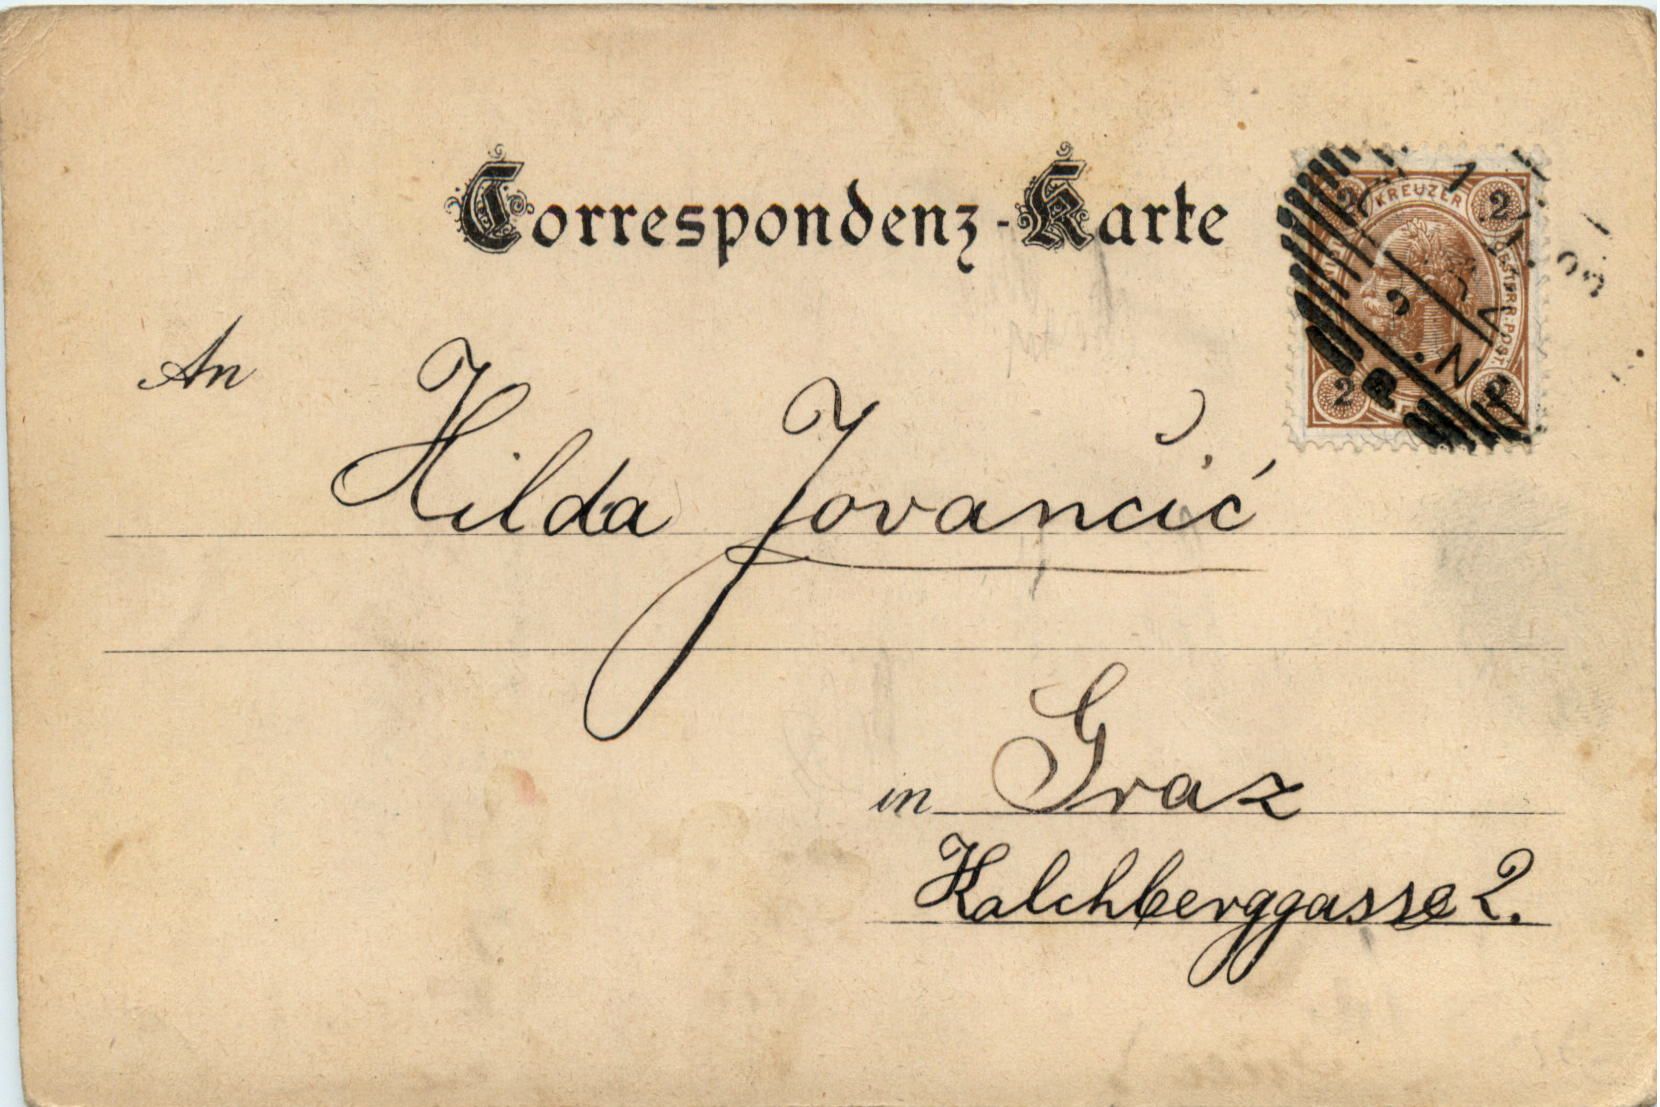 Correspondenz-Karte
2 KREUZER 2
OESTERR. POST.
2 2
An
Hilda Jovančić
in Graz
Kalchberggasse 2.